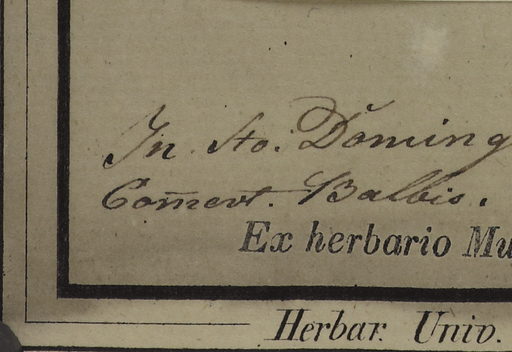 In Sto. Doming
Com̄ert. Balbis.
Ex herbario Mu
Herbar. Univ.